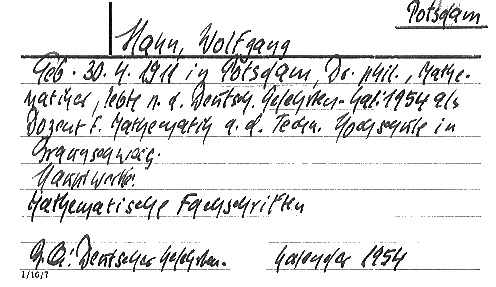 Potsdam
Hahn, Wolfgang
Geb. 30.4.1911 in Potsdam, Dr. phil., Mathe-
matiker, lebte n. d. Deutsch. Gelehrten-Kal. 1954 als
Dozent f. Mathematik a. d. Techn. Hochschule in
Braunschweig.
Hauptwerke:
Mathematische Fachschriften
Deutscher Gelehrten- Kalender 1954
1/16/7